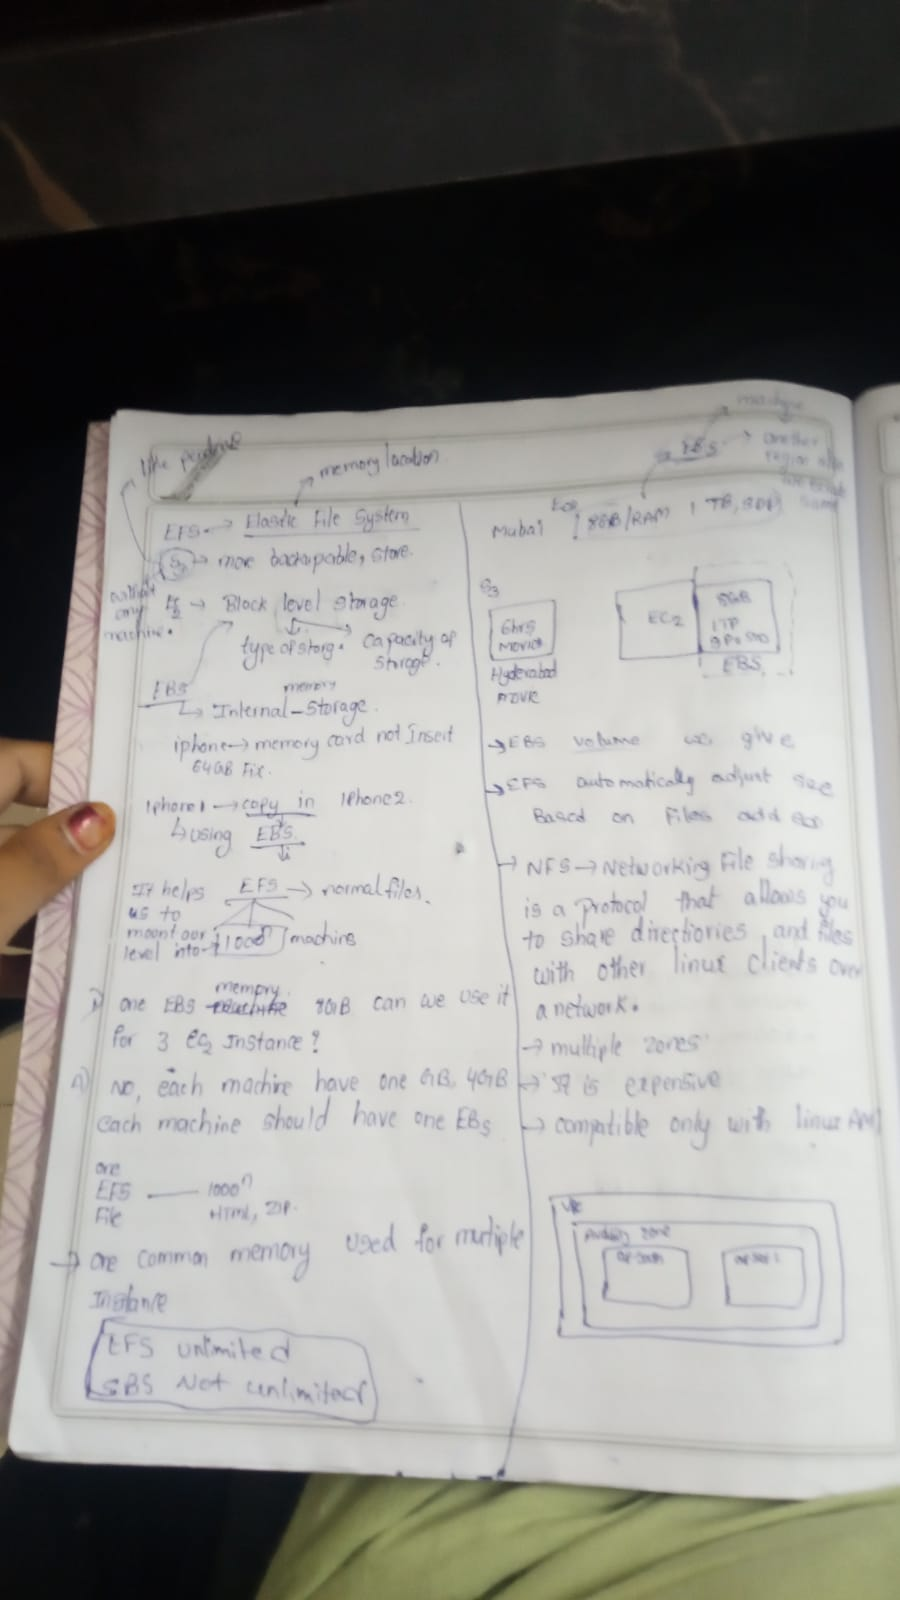 like pendrive
memory location
EFS → Elastic File System
S3 → more backupable, store.
without
any
machine.
→ Block level storage
type of storg. capacity of
storage.
EBS
memory
↳ Internal-storage.
iphone → memory card not Insert
64GB Fix.
Iphone1 → copy in Iphone2.
↳ using EBS.
It helps EFS → normal files.
us to
mount our
level into → 1000n machine
memory
one EBS machine 8GB can we use it
for 3 EC2 Instance?
A) No, each machine have one GB, 4GB
each machine should have one EBS
one
EFS — 1000n
File HTML, ZIP.
→ one common memory used for multiple
Instance
EFS unlimited
EBS Not unlimited
machine
EBS → another
region also
Mubai 8GB/RAM 1 TB,
S3
6hrs
Movie
Hyderabad
EC2
8GB
EBS
→ EBS volume we give
→ EFS automatically adjust
Based on Files add
→ NFS → Networking File sharing
is a protocol that allows you
to share directiories and files
with other linux clients over
a network.
→ multiple zones
→ It is expensive
→ compatible only with linux AMI
zone